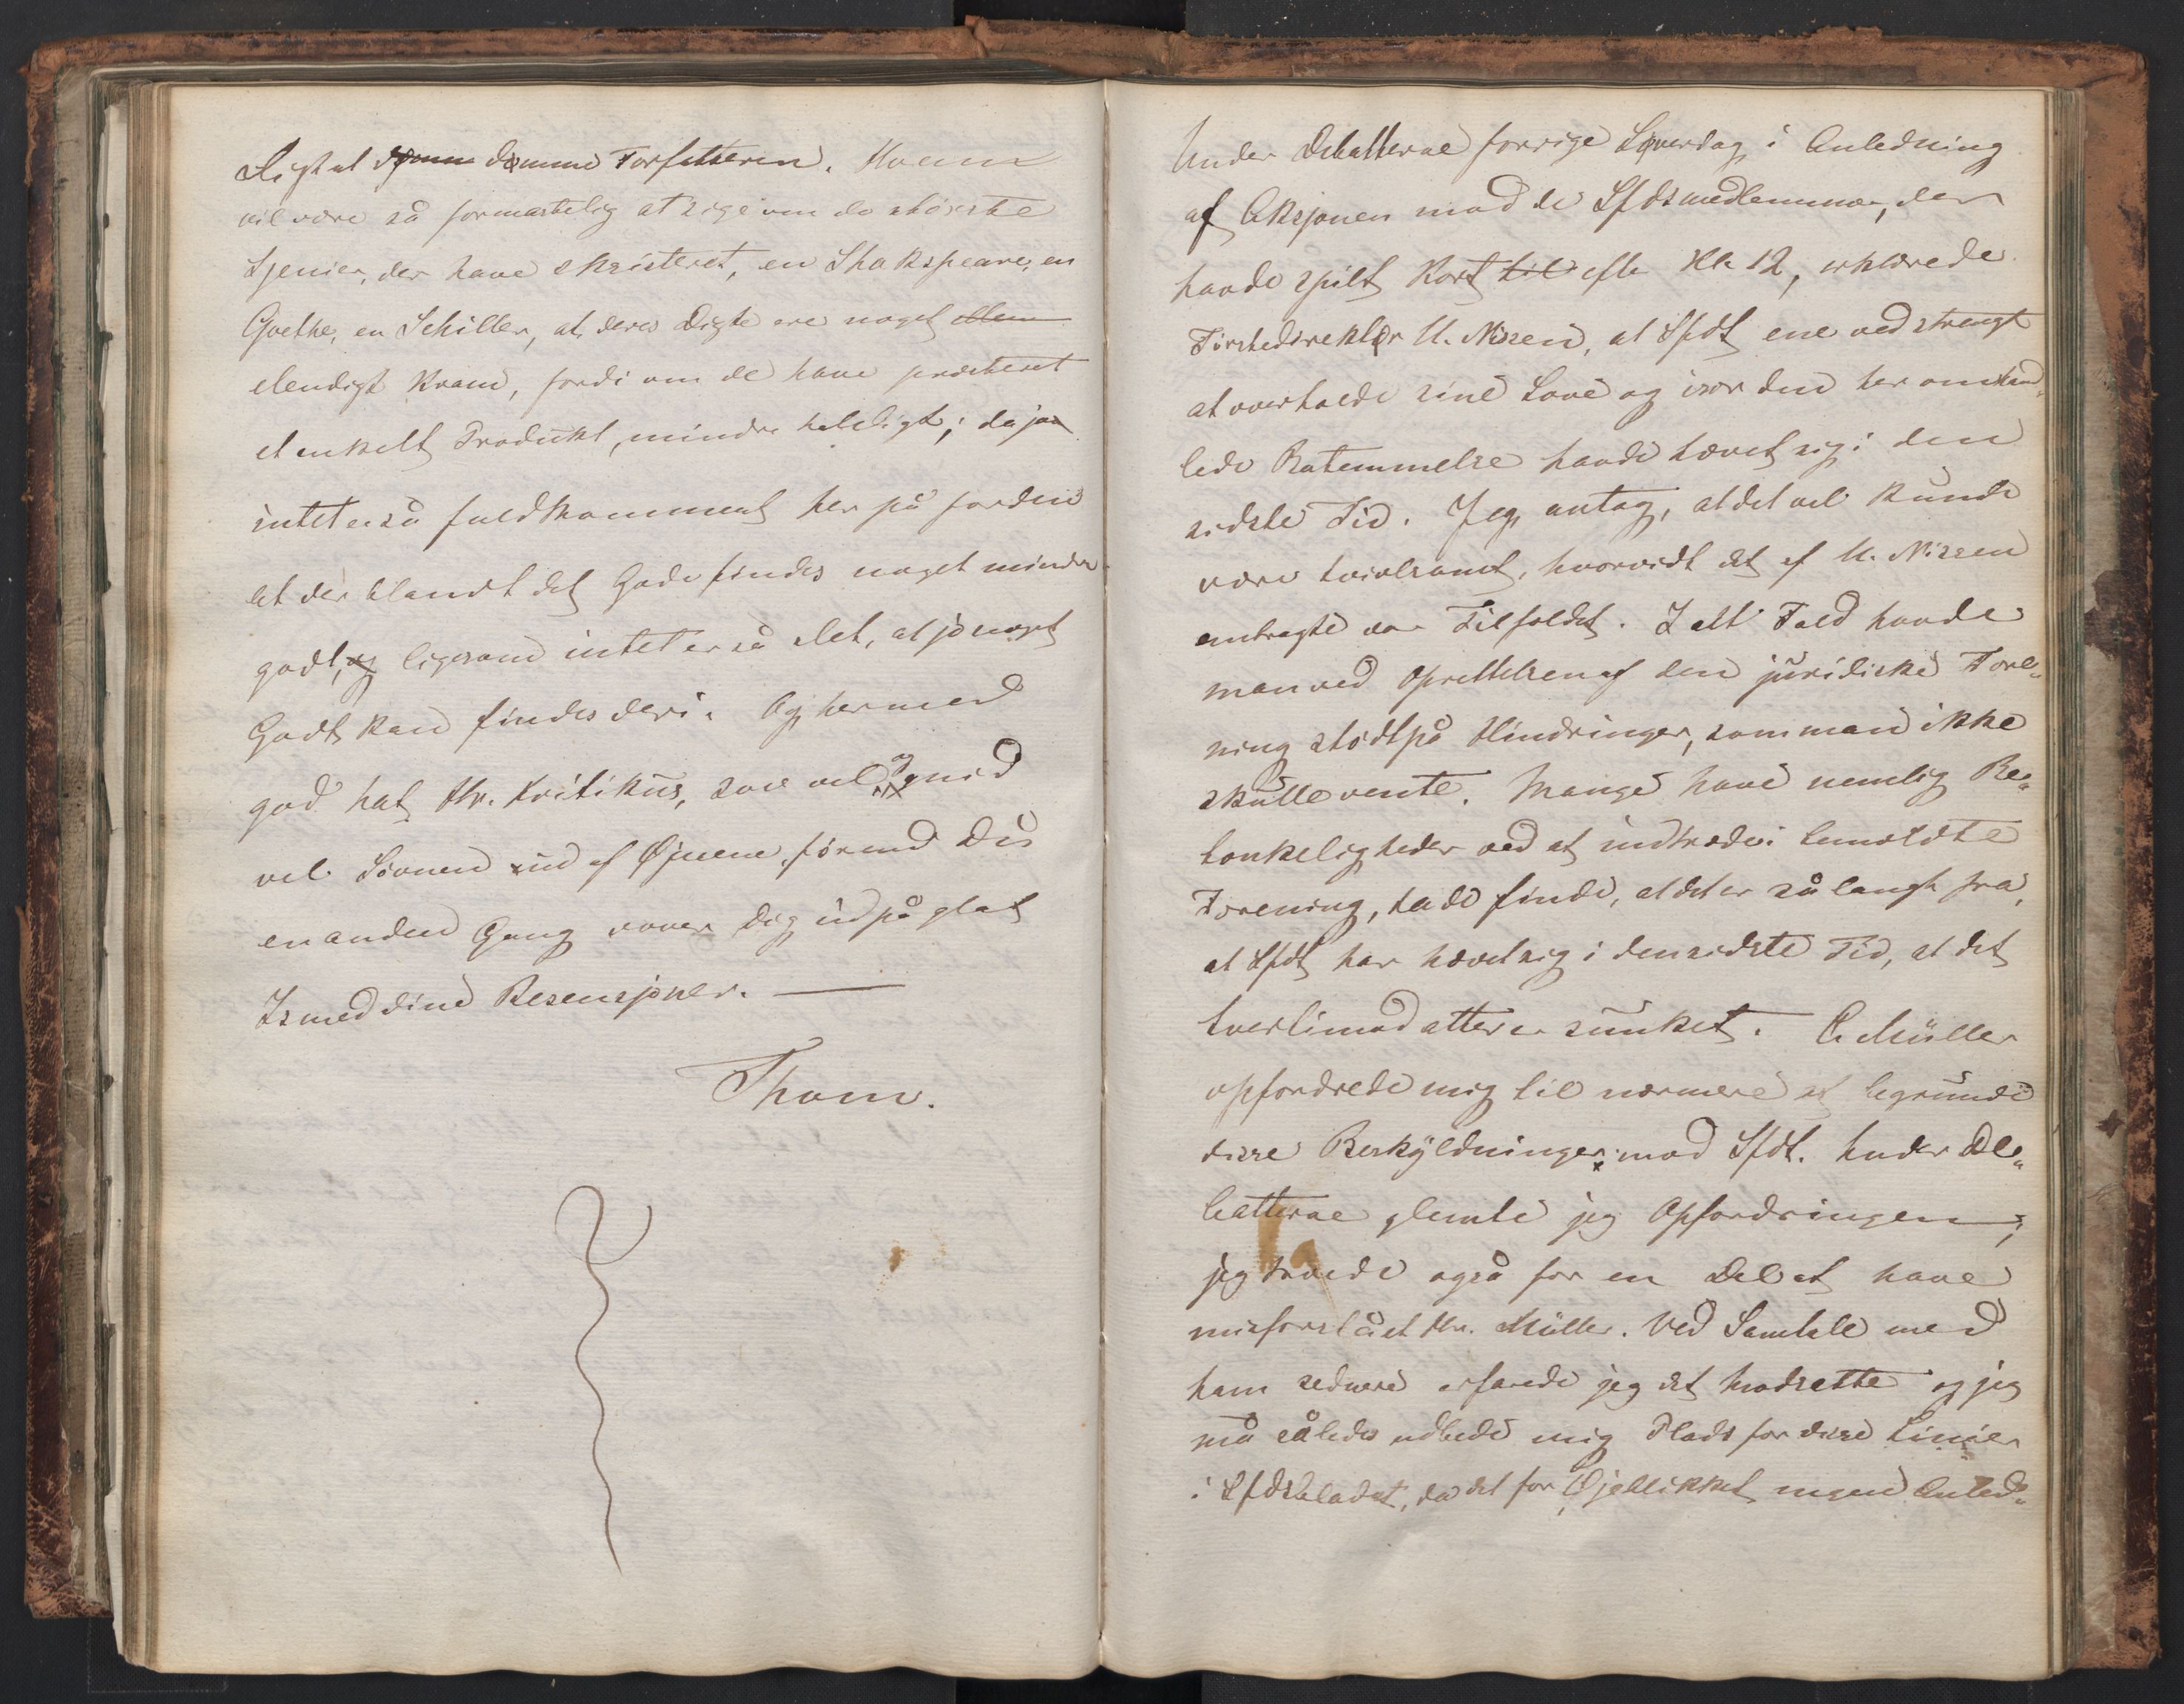 Digt at dømme dømme Forfatteren. Hvem
vil være så formastelig at sige om de største
Sjenier, der have eksisteret, en Shakspeare, en
Goethe, en Schiller, at deres Digte ere noget elen
elendigt Kram, fordi om de have præsteret
et enkelt Produkt, mindre heldigt; da jo
intet er så fuldkomment her på Jorden
at der blandt det Gode findes noget mindre
godt, og ligesom intet er så slet, at jo noget
Godt kan findes deri. Og hermed
god Nat Hr. Kritikus, sov vel og gnid
vel Søvnen ud af Øjnene, førend Du
en anden Gang vover dig ud på glat
Is med dine Resensjoner. —
Thom.
Under Debatterne forrige Løverdag i Anledning
af Aksjonen mod de Sfdsmedlemmer, der
havde spilt Kort til efter Kl. 12, erklærede
Førstedirektør U. Nissen, at Sfdt ene ved strengt
at overholde sine Love og især den her omhand-
lede Bestemmelse havde hævet sig i den
sidste Tid. Jeg antog, at det vel kunde
være tvivlsomt, hvorvidt det af U. Nissen
anbragte var Tilfældet. I alt Fald havde
man ved Oprettelsen af den juridiske Fore-
ning stødt på Hindringer, som man ikke
skulle vente. Mange have nemlig Be-
tænkeligheder ved at indtræde i bemeldte
Forening, da de finde, at det er så langt fra,
at Sfdt har hævet sig i den sidste Tid, at det
tvertimod atter er sunket. C. Müller
opfordrede mig til nærmere at begrunde
disse Beskyldninger mod Sfdt. Under De-
batterne glemte jeg Opfordringen;
jeg troede også for en Del at have
misforstået Hr. Müller. Ved Samtale med
ham sednere erfarede jeg det Modsatte og jeg
må således udbede mig Plads for disse Linier
i Sfdsbladet, da det for Øjeblikket ingen Anled-